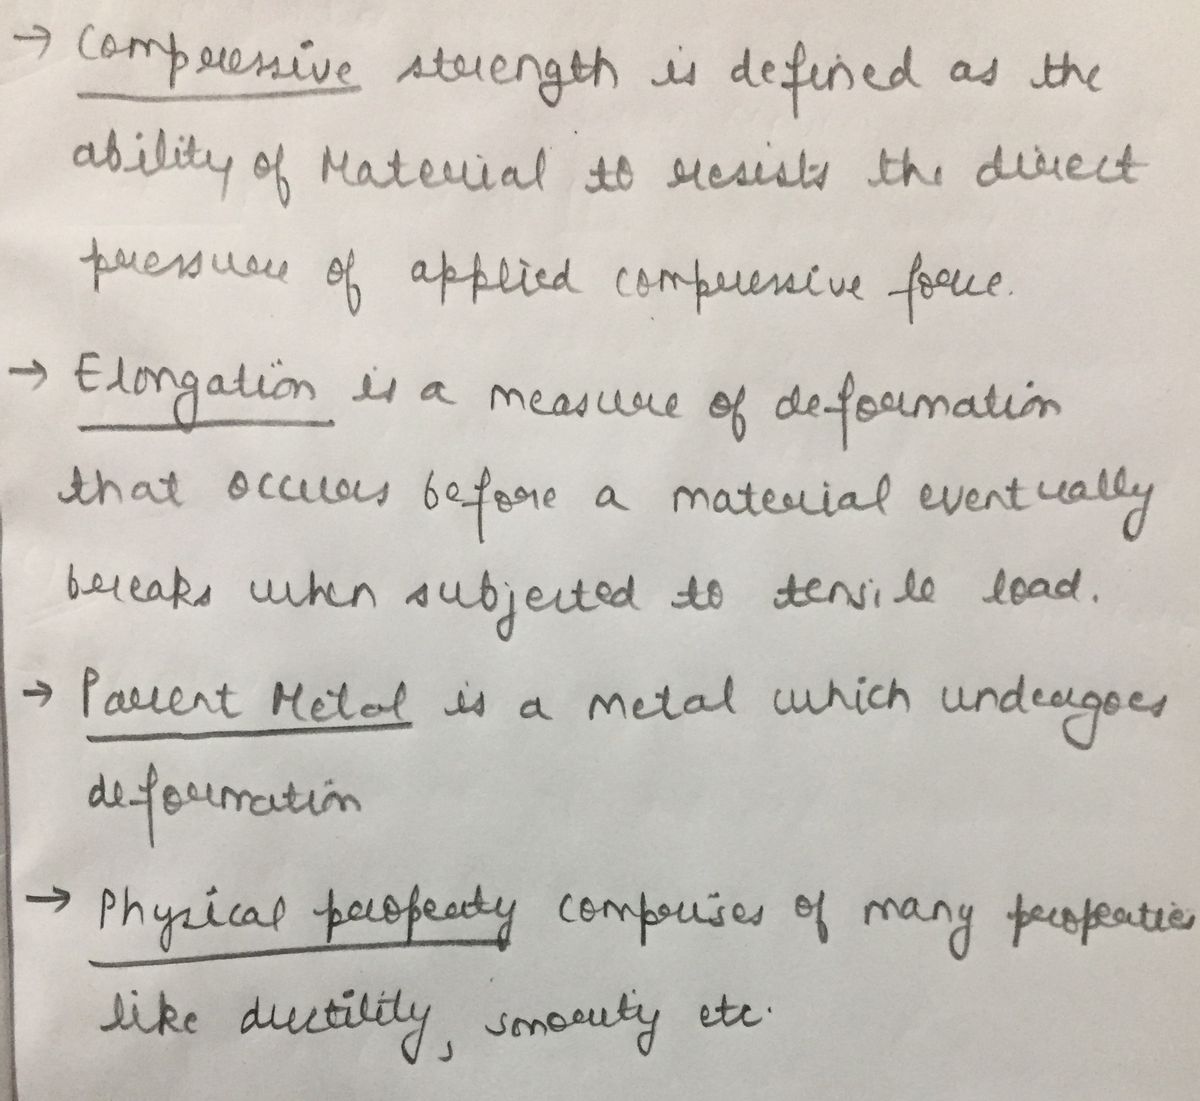 → Compressive strength is defined as the
ability of Material to resists the direct
pressure of applied compressive force.
→ Elongation is a measure of deformation
that occurs before a material eventually
breaks when subjected to tensile load.
→ Parent Metal is a metal which undergoes
deformation
→ Physical property comprises of many properties
like ductility, etc.